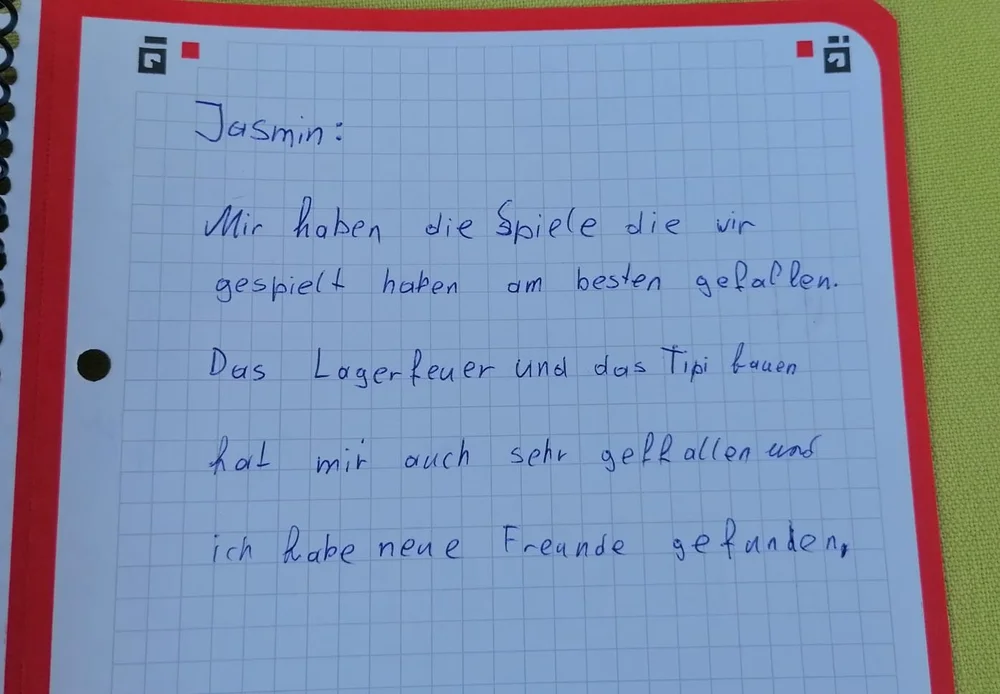 Jasmin:
Mir haben die Spiele die wir
gespielt haben am besten gefallen.
Das Lagerfeuer und das Tipi bauen
hat mir auch sehr geffallen und
ich habe neue Freunde gefunden.